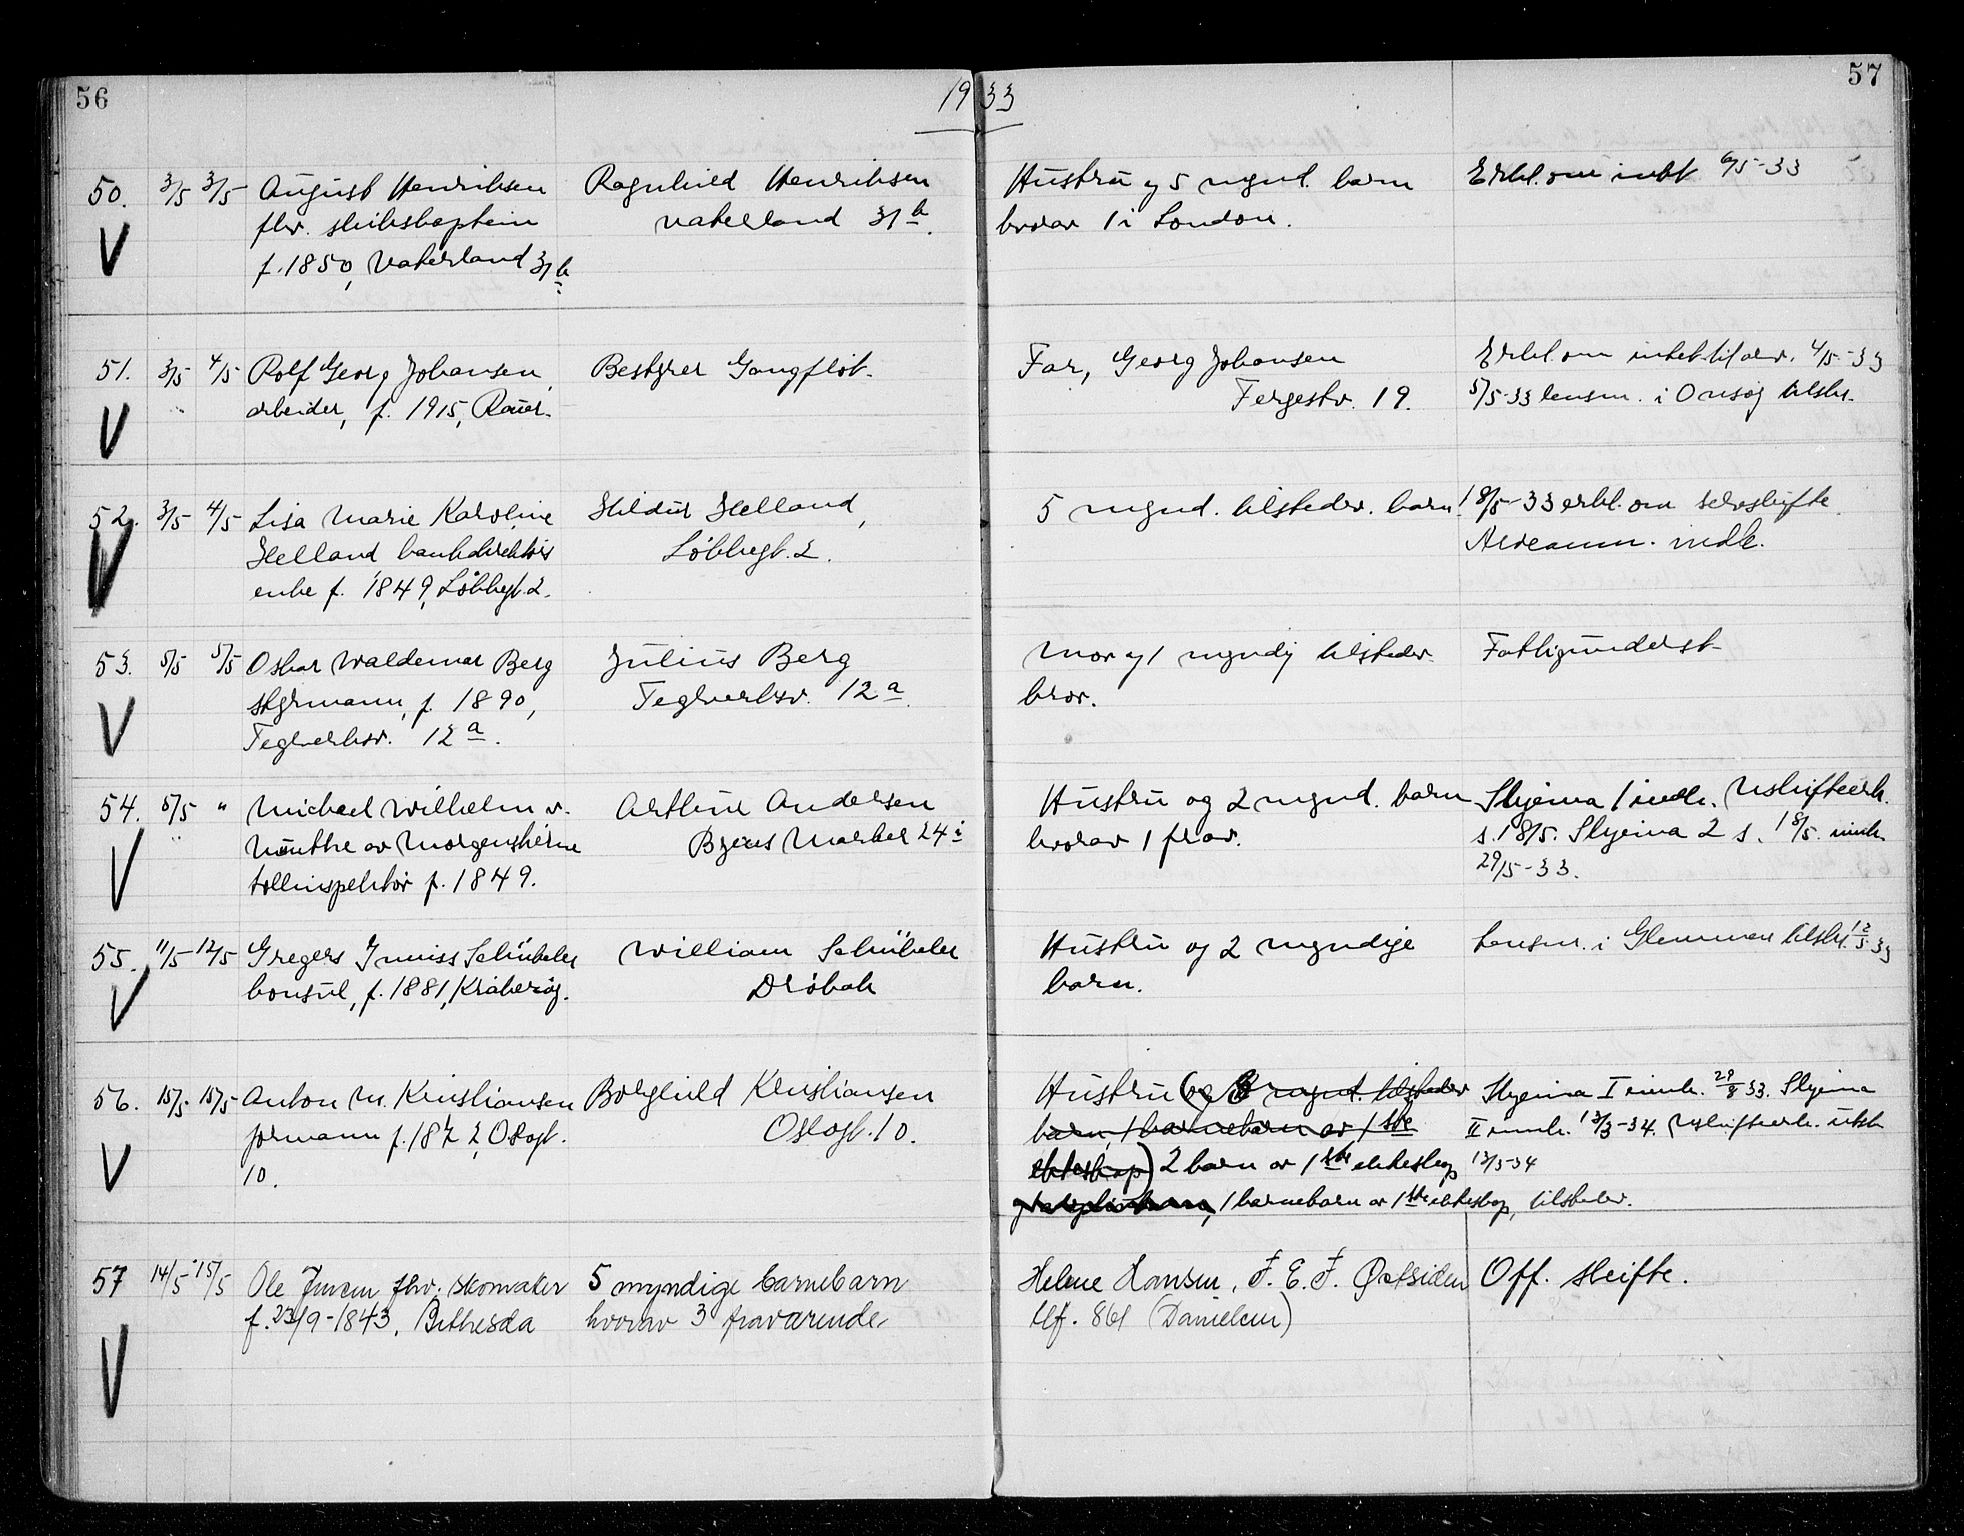 56
1933
57
50. 3/5 3/5 August Henriksen Ragnhild Henriksen Hustru og 5 mynd. barn Erkl. om intet 6/5-33
fhv. skibskaptein Vaterland 31 b. hvorav 1 i London.
f. 1850, Vaterland 31 b.
51. 3/5 4/5 Rolf Georg Johansen, Bestyrer Gangflöt. Far, Georg Johansen Erkl. om intet til 4/5-33
arbeider, f. 1915, Rauer. Fergestv. 19. 5/5-33 lensm. i Onsøy tilskr.
52. 3/5 4/5 Lisa Marie Karoline Hildur Helland, 5 mynd. tilsteder. barn. 18/5-33 erkl. om selvskifte.
Helland bankdirektörs Lökkegt. 2. indk.
enke f. 1849, Lökkegt. 2.
53. 5/5 5/5 Oskar Waldemar Berg Julius Berg Mor og 1 myndig tilsteder. Fattigunderst.
styrmann, f. 1890, Teglverksv. 12 a. bror.
Teglverksv. 12 a.
54. 5/5 " Michael Wilhelm v. Arthur Andersen Hustru og 2 mynd. barn Skjema 1 indk. Uskifteerk.
Munthe av Morgenstierne Bjens Marker 24 hvorav 1 frav. s. 18/5. Skjema 2 s. 18/5. innk.
tollinspektör f. 1849. 29/5-33.
55. 11/5 12/5 Gregers Schübeler William Schübeler Hustru og 2 myndige Lensm. i Glemmen tilskr. 12/5 33
konsul, f. 1881, Kråkeröy. Dröbak barn.
56. 15/5. 15/5 Anton M. Kristiansen Borghild Kristiansen Hustru (og 3 mynd. tilsteder Skjema I innk. 29/8 33. Skjema
formann f. 1872, Oslogt. Oslogt. 10. barn, 1 barnebarn av 1ste II innk. 13/3-34. Uskifteerk. utst.
10. ekteskap) 2 barn av 1ste ekteskap 13/3-34
1 barnebarn av 1ste ekteskap, tilsteder.
57 14/5 15/5 Ole Jensen fhv. skomaker 5 myndige barnebarn Helene Hansen, F. E. F. Østsiden Off. skifte.
f. 23/9-1843, Bethesda hvorav 3 fraværende tlf. 861 (Danielsen)